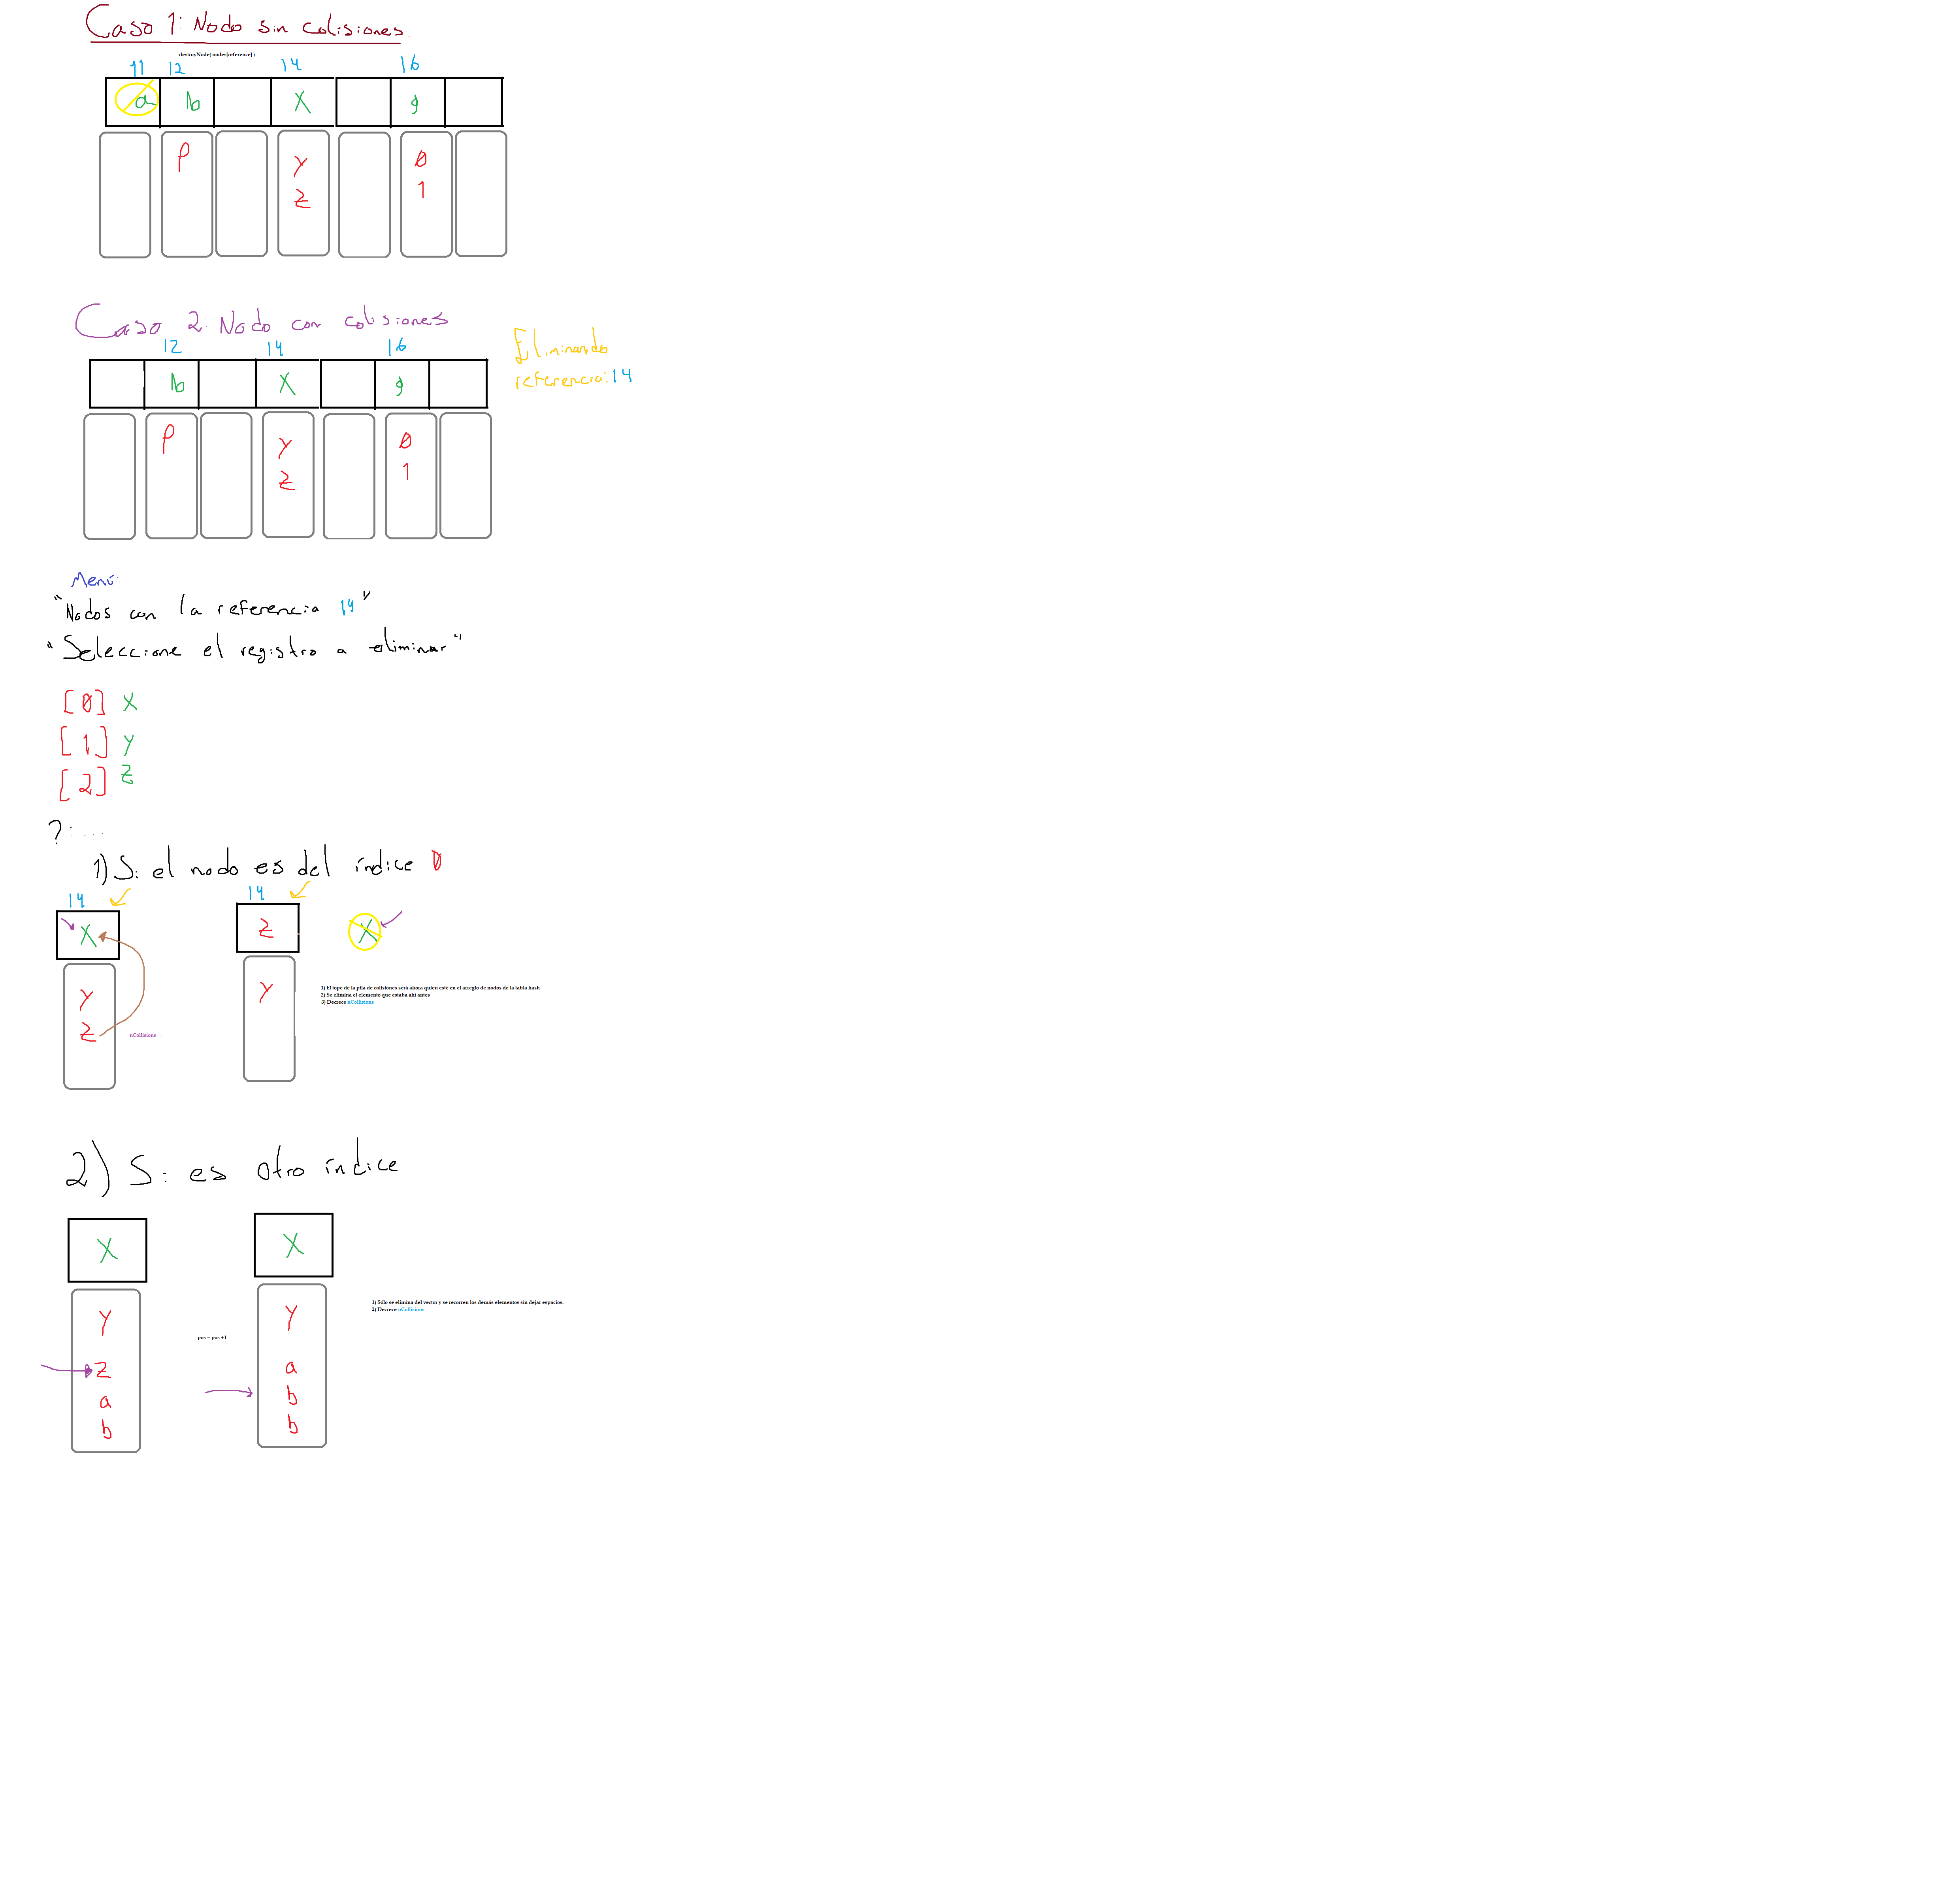 Caso 1: Nodo sin colisiones.
destroyNode( nodes[reference] )
11 12 14 16
a b X g
P Y 0
Z 1
Caso 2: Nodo con colisiones
Eliminando
referencia: 14
12 14 16
b X g
P Y 0
Z 1
Menú:
"Nodos con la referencia 14"
"Seleccione el registro a eliminar"
[0] X
[1] Y
[2] Z
?: ....
1) Si el nodo es del índice 0
14 14
X Z X
Y Y
Z
1) El tope de la pila de colisiones será ahora quien esté en el arreglo de nodos de la tabla hash
2) Se elimina el elemento que estaba ahí antes
3) Decrece nCollisions
nCollisions - -
2) Si es otro índice
X X
Y Y
Z a
a b
b b
pos = pos +1
1) Sólo se elimina del vector y se recorren los demás elementos sin dejar espacios.
2) Decrece nCollisions - -